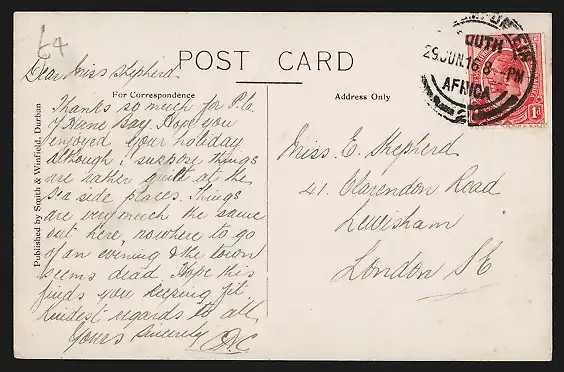 64
POST CARD
For Correspondence
Address Only
Published by Smith & Winfield, Durban
Dear Miss Shepherd,
Thanks so much for P.C.
of Herne Bay. Hope you
enjoyed your holiday
although I suppose things
are rather quiet at the
sea side places. Things
are very much the same
out here, nowhere to go
of an evening & the town
seems dead. Hope this
finds you keeping fit.
Kindest regards to all.
Yours Sincerely
Miss E. Shepherd
41. Clarendon Road
Lewisham
London SE
SOUTH
29 JUN 16 8 - PM
AFRICA
1d